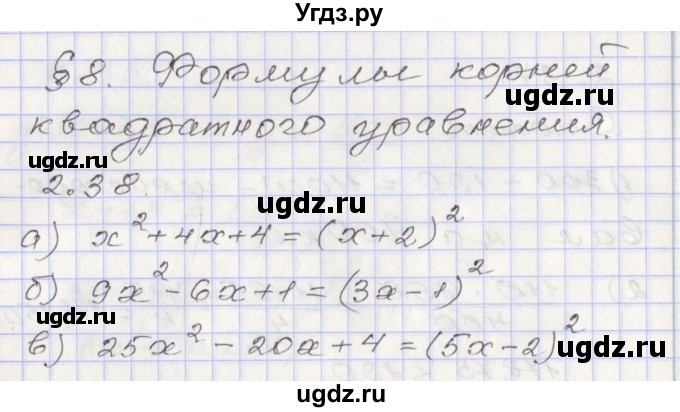 Угдз.ру
§8. Формулы корней
квадратного уравнения.
2.38.
а) x² + 4x + 4 = (x + 2)²
б) 9x² - 6x + 1 = (3x - 1)²
в) 25x² - 20x + 4 = (5x - 2)²
ugdz.ru
ugdz.ru
ugdz.ru
ugdz.ru
ugdz.ru
ugdz.ru
ugdz.ru
ugdz.ru